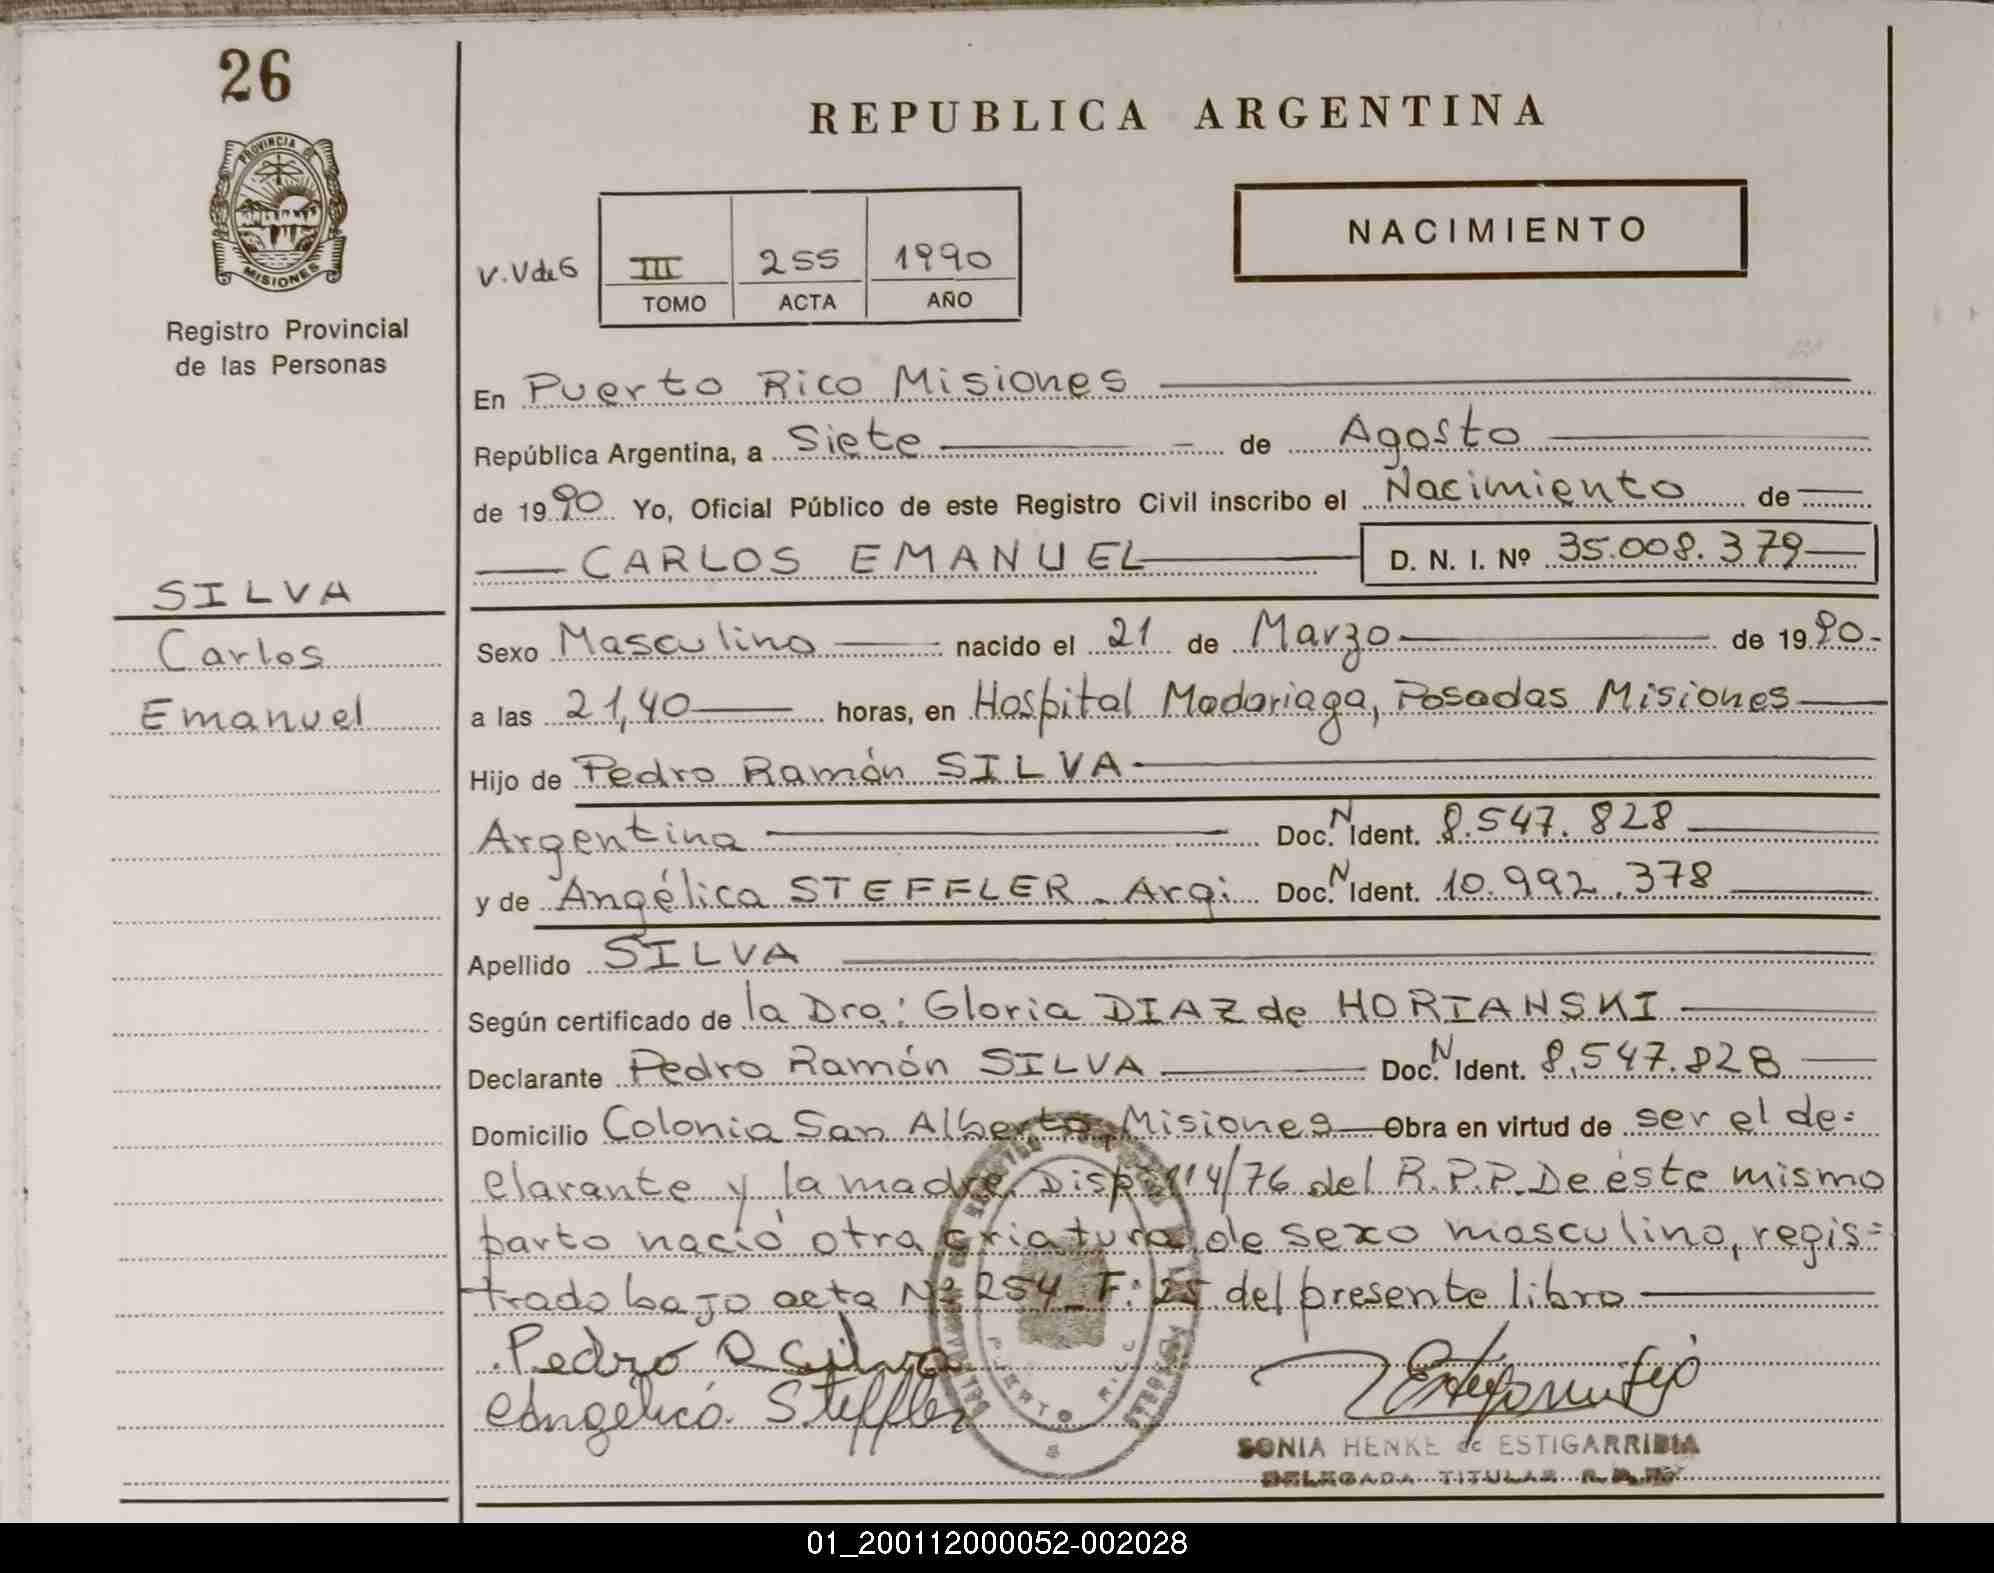 26
PROVINCIA DE
MISIONES
Registro Provincial
de las Personas
SILVA
Carlos
Emanuel
REPUBLICA ARGENTINA
NACIMIENTO
V. V de G
III 255 1990
TOMO ACTA AÑO
En Puerto Rico Misiones
República Argentina, a Siete de Agosto
de 1990 Yo, Oficial Público de este Registro Civil inscribo el Nacimiento de
CARLOS EMANUEL D. N. I. Nº 35.008.379
Sexo Masculino nacido el 21 de Marzo de 1990.-
a las 21,40 horas, en Hospital Madariaga, Posadas Misiones
Hijo de Pedro Ramón SILVA
Argentina Doc. N Ident. 8.547.828
y de Angélica STEFFLER - Arg: Doc. N Ident. 10.992.378
Apellido SILVA
Según certificado de la Dra.: Gloria DIAZ de HORIANSKI
Declarante Pedro Ramón SILVA Doc. N Ident. 8.547.828
Domicilio Colonia San Alberto, Misiones Obra en virtud de ser el de=
clarante y la madre. Disp. 114/76 del R.P.P. De éste mismo
parto nació otra criatura de sexo masculino, regis=
trado bajo acta Nº 254_ F: 25 del presente libro
Pedro R Silva
Angélica Steffler
PUERTO RICO
SONIA HENKE de ESTIGARRIBIA
DELEGADA TITULAR R.P.P.
01_200112000052-002028